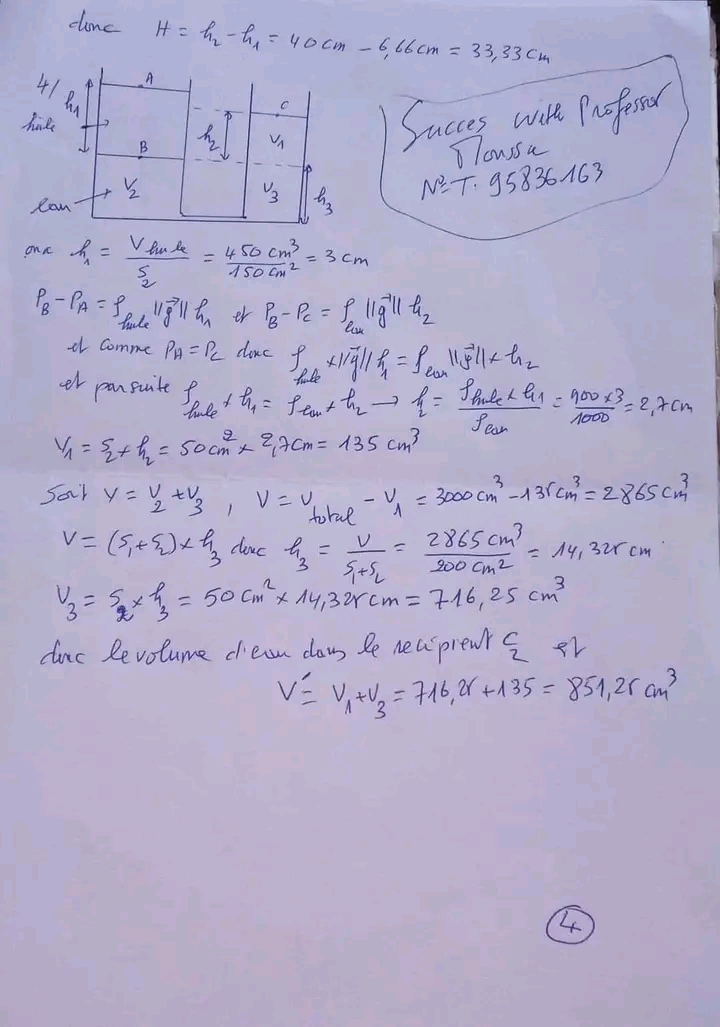 donc H = h₂ - h₁ = 40 cm - 6,66 cm = 33,33 cm
4/
A
h₁
huile
B
V₂
eau
h₂
C
V₁
V₃
h₃
Succes with Professor
Moussa
N°T. 95836163
ona h₁ = V huile / S₂ = 450 cm³ / 150 cm² = 3 cm
P_B - P_A = ρ huile ||g⃗|| h₁ et P_B - P_C = ρ eau ||g⃗|| h₂
et comme P_A = P_C donc ρ huile × ||g⃗|| h₁ = ρ eau ||g⃗|| × h₂
et par suite ρ huile × h₁ = ρ eau × h₂ → h₂ = ρ huile × h₁ / ρ eau = 900 × 3 / 1000 = 2,7 cm
V₁ = S₂ × h₂ = 50 cm² × 2,7 cm = 135 cm³
Soit V = V₂ + V₃ , V = V total - V₁ = 3000 cm³ - 135 cm³ = 2865 cm³
V = (S₁ + S₂) × h₃ donc h₃ = V / S₁ + S₂ = 2865 cm³ / 200 cm² = 14,325 cm
V₃ = S₂ × h₃ = 50 cm² × 14,325 cm = 716,25 cm³
donc le volume d'eau dans le recipient C₂ est
V' = V₁ + V₃ = 716,25 + 135 = 851,25 cm³
4